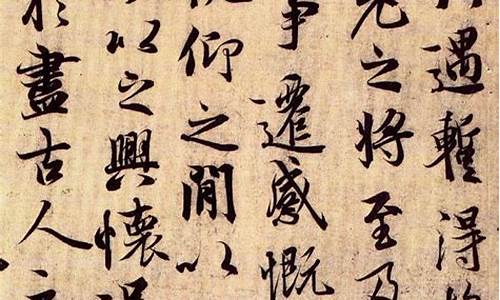 遇暫得
老之將至及
事遷感慨
仰之間以
以之興懷
於盡古人云